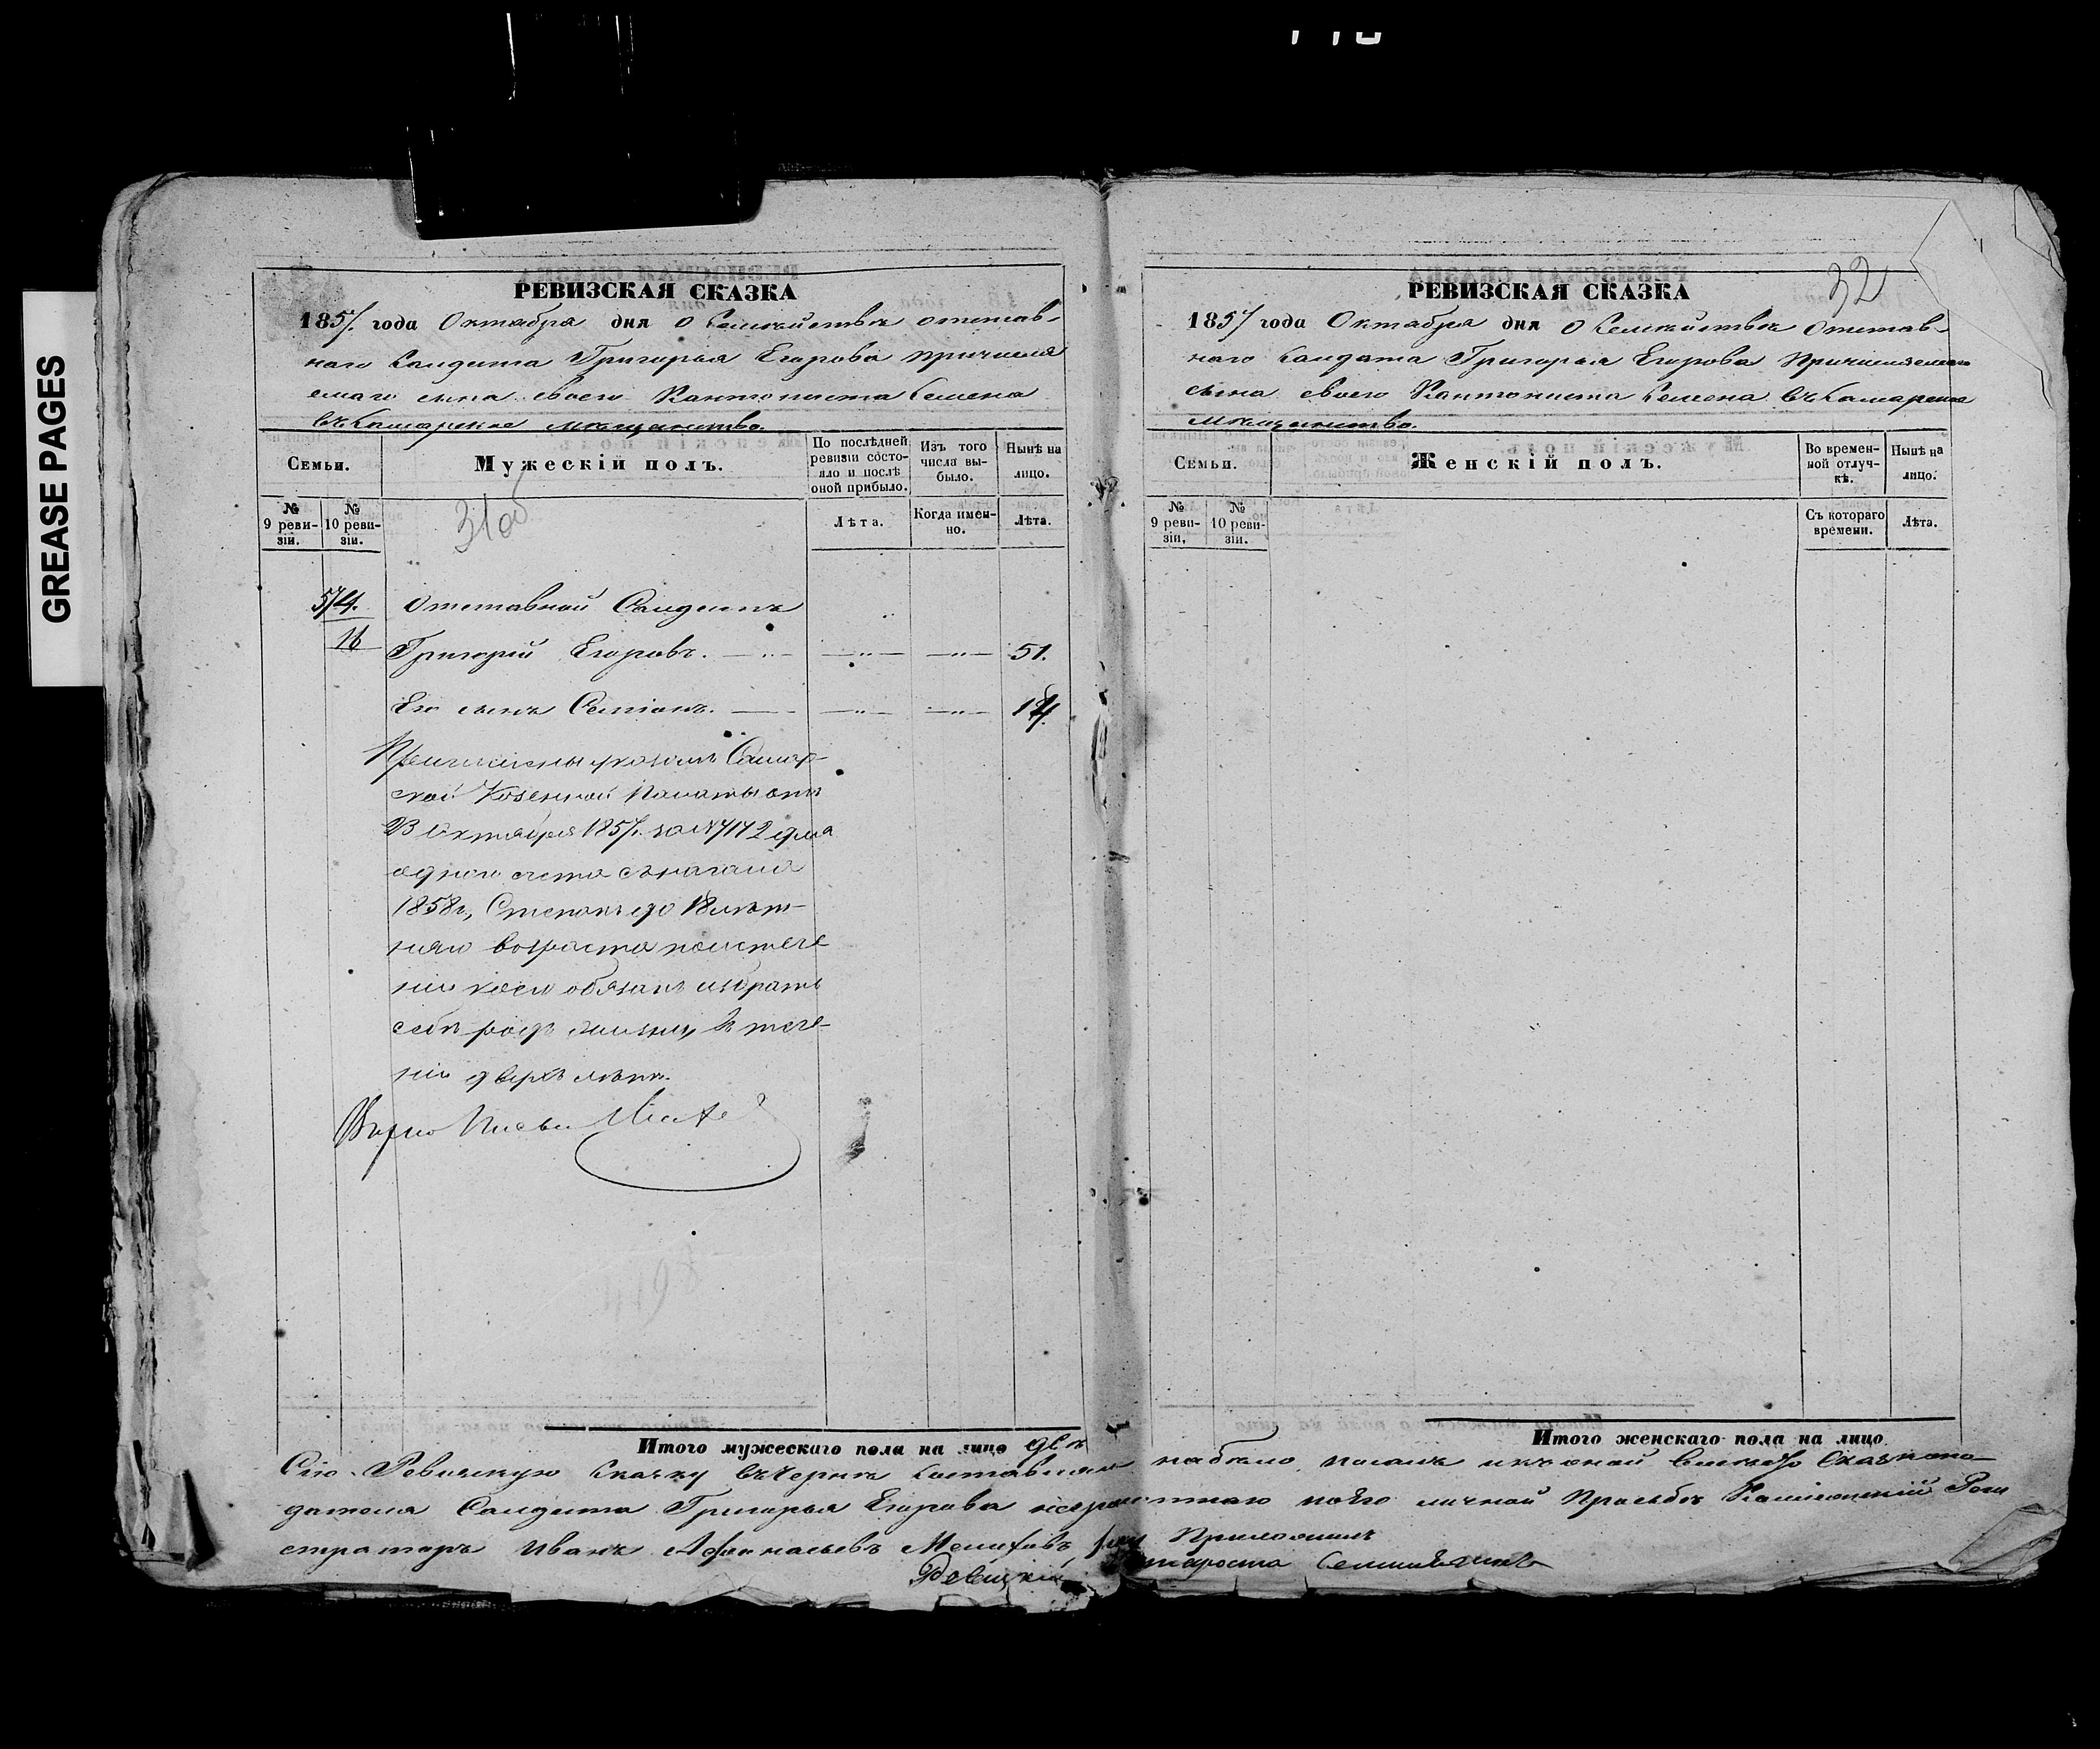 GREASE PAGES
РЕВИЗСКАЯ СКАЗКА
1857. года Октября дня о Семействе отстав-
наго Солдата Григорья Егорова причисля
емаго сына своего Кантониста Семена
въ Самарское мещанство.
Семьи.
Мужескій полъ.
По послѣдней ревизіи состо-
яло и послѣ оной прибыло.
Изъ того числа вы-
было.
Нынѣ на лицо.
№ 9 реви-
зіи.
№ 10 реви-
зіи.
Лѣта.
Когда имен-
но.
Лѣта.
31об
574.
16
Отставной Солдатъ
Григорій Егоровъ. 51.
Его сынъ Семіонъ. 14.
Причислены указомъ Самар-
ской Казенной Палаты отъ
23 Октября 1857. за № 7172 для
однаго счета съ начала
1858г., Степанъ до 18 лѣт-
няго возраста по истече-
ніи коего обязанъ избрать
себѣ родъ жизни, въ тече-
ніи двухъ лѣтъ.
Вѣрно
Итого мужескаго пола на лицо два
32
РЕВИЗСКАЯ СКАЗКА
1857 года Октября дня о Семействе отстав-
наго Солдата Григорья Егорова причисляемаго
сына своего Кантониста Семена въ Самарское
мещанство.
Семьи.
Женскій полъ.
Во времен-
ной отлуч-
кѣ.
Нынѣ на лицо.
№ 9 реви-
зіи.
№ 10 реви-
зіи.
Съ котораго времени.
Лѣта.
Итого женскаго пола на лицо
Сію Ревизскую Сказку въ Чернѣ составлялъ набѣло писалъ и къ оной вместо Сказкопо-
дателя Солдата Григорья Егорова неграмотнаго по его личной просьбѣ Регис
страторъ Иванъ Афонасьевъ руку Приложилъ
Староста